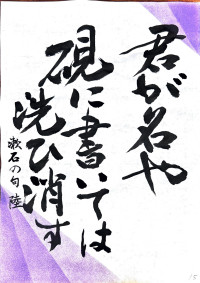 君が名や
硯に書いては
洗ひ消す
漱石の句 陸
15